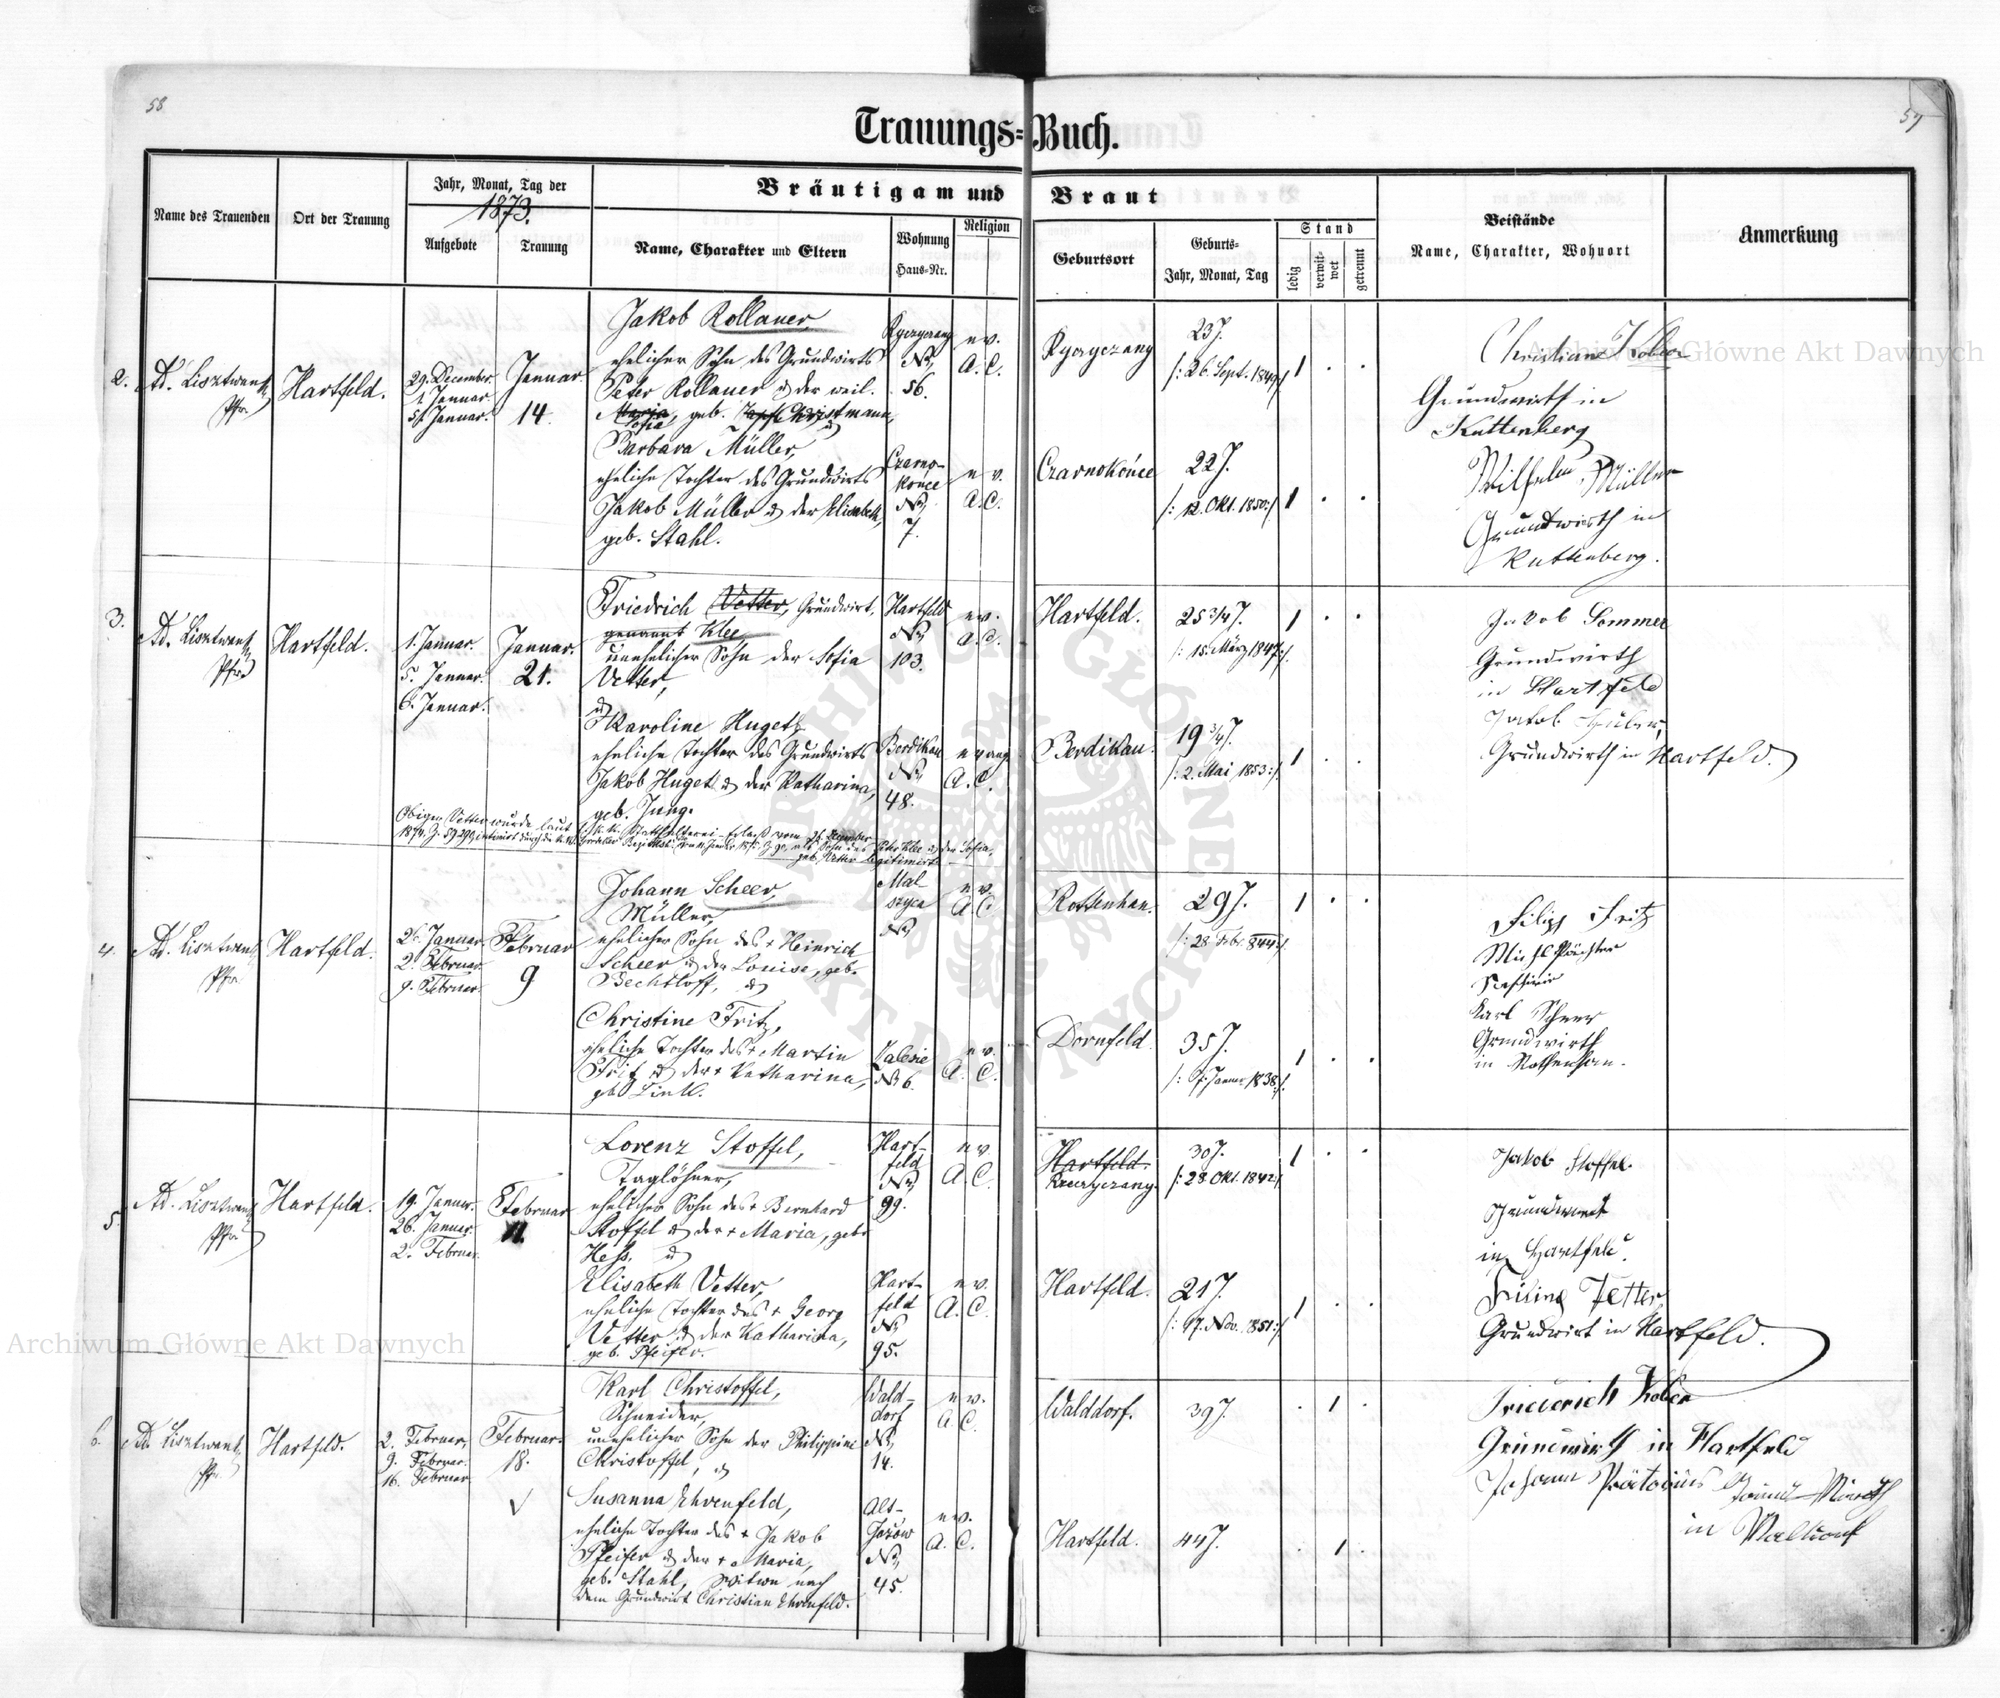 58
59
Trauungs=Buch.
Name des Trauenden
Ort der Trauung
Jahr, Monat, Tag der
1873.
Aufgebote
Trauung
Bräutigam und Braut
Name, Charakter und Eltern
Wohnung
Haus=Nr.
Religion
Geburtsort
Geburts=
Jahr, Monat, Tag
Stand
ledig
verwit-
wet
getrennt
Beistände
Name, Charakter, Wohnort
Anmerkung
2.
Ad. Lisztwan
Pfr.
Hartfeld.
29. December.
1. Januar.
5. Januar.
Januar.
14.
Jakob Rollauer,
ehelicher Sohn des Grundwirts
Peter Rollauer u. der weil.
Maria, geb. Christmann,
Sofia
u
Barbara Müller,
eheliche Tochter des Grundwirts
Jakob Müller u. der Elisabeth,
geb. Stahl.
Ryczyczany
No,
56.
ev.
A. C.
Czarno-
kónce
No,
7.
ev.
A. C.
Ryczyczany
23 J.
/: 26. Sept. 1849 :/
1 . .
Czarnokónce
22 J.
/: 12. Okt. 1850 :/
1 . .
Christian Kolier
Grundwirth in
Kuttenberg
Wilhelm Müller
Grundwirth in
Kuttenberg.
3.
Ad. Lisztwan
Pfr.
Hartfeld.
1. Januar.
5. Januar.
6. Januar.
Januar.
21.
Friedrich Vetter, Grundwirt,
genannt Klee,
unehelicher Sohn der Sofia
Vetter,
u
Karoline Huget,
eheliche Tochter des Grundwirts
Jakob Huget u. der Katharina,
geb. Jung.
Hartfeld
No,
103.
ev.
A. C.
Berdikau
No,
48.
evang.
A. C.
Hartfeld.
25 3/4 J.
/: 15. März 1847 :/
1 . .
Berdikau.
19 3/4 J.
/: 2. Mai 1853 :/
1 . .
Jakob Sommer
Grundwirth
in Hartfeld
Jakob Huber,
Grundwirth in Hartfeld.
Obiger Vetter wurde laut k. k. Statthalterei-Erlaß vom 26. December
als Sohn des Peter Klee u. der Sofia,
geb. Vetter legitimirt.
4.
Ad. Lisztwan
Pfr.
Hartfeld.
26. Januar.
2. Februar.
9. Februar.
Februar
9
Johann Scheer,
Müller,
ehelicher Sohn des + Heinrich
Scheer u. der Louise, geb.
Bechtloff, u
Christine Fritz,
eheliche Tochter des + Martin
Fritz u. der + Katharina,
geb. Link.
Mal-
szyce
No,
ev.
A. C.
Zalesie
No 6.
ev.
A. C.
Rottenhan.
29 J.
/: 28. Febr. 844 :/
1 . .
Dornfeld.
35 J.
/: 7. Januar 1838 :/
1 . .
Filipp Fritz
Karl Scheer
Grundwirth
in Rottenhan.
5.
Ad. Lisztwan
Pfr.
Hartfeld.
19. Januar.
26. Januar.
2. Februar.
Februar
11.
Lorenz Stoffel,
Taglöhner,
ehelicher Sohn des + Bernhard
Stoffel u. der + Maria, geb.
Heß, u
Elisabeth Vetter,
eheliche Tochter des + Georg
Vetter u. der Katharina,
geb. Pfeifer.
Hart-
feld
No,
99.
ev.
A. C.
Hart-
feld
No,
95.
ev.
A. C.
Hartfeld.
30 J.
/: 28. Okt. 1842 :/
1 . .
Hartfeld.
21 J.
/: 17. Nov. 1851 :/
1 . .
Jakob Stoffel.
Grundwirt
in Hartfeld.
Filipp Fetter
Grundwirt in Hartfeld.
6.
Ad. Lisztwan
Pfr.
Hartfeld.
2. Februar.
9. Februar.
16. Februar
Februar.
18.
Karl Christoffel,
Schneider,
unehelicher Sohn der Philippine
Christoffel, u
Susanna Ehrenfeld,
eheliche Tochter des + Jakob
Pfeifer u. der + Maria,
geb. Stahl, Witwe nach
dem Grundwirt Christian Ehrenfeld.
Wald-
dorf
No,
14.
ev.
A. C.
Alt-
Jazów
No,
45.
ev.
A. C.
Walddorf.
39 J.
. 1 .
Hartfeld.
44 J.
. 1 .
Friederich Kolier
Grundwirth in Hartfeld
Johann Prätorius Grund-Wirth
in Waldorf
Archiwum Główne Akt Dawnych
Archiwum Główne Akt Dawnych
ARCHIWUM GŁÓWNE AKT DAWNYCH